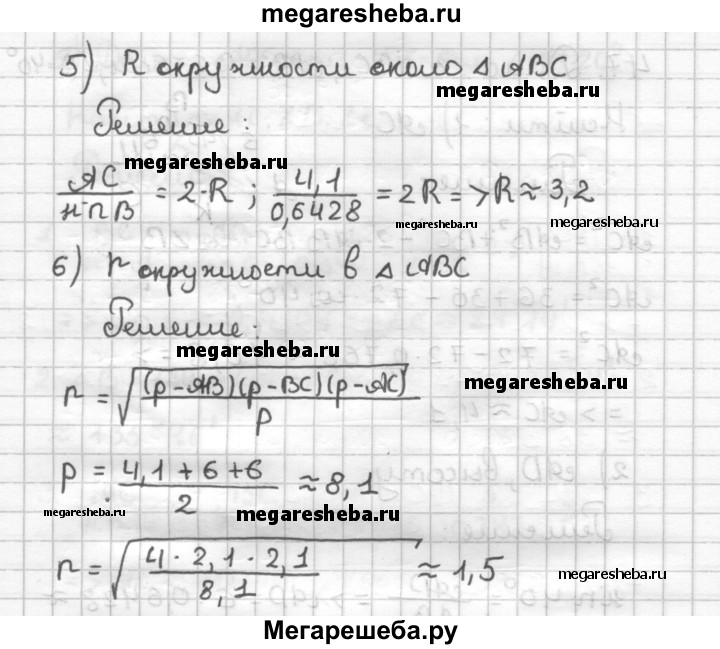 megaresheba.ru
5) R окружности около △ ABC
megaresheba.ru
Решение:
megaresheba.ru
AC / sin B = 2·R ; 4,1 / 0,6428 = 2R => R ≈ 3,2
megaresheba.ru
megaresheba.ru
6) r окружности в △ ABC
Решение:
megaresheba.ru
r = √((p-AB)(p-BC)(p-AC) / p)
megaresheba.ru
p = (4,1 + 6 + 6) / 2 ≈ 8,1
megaresheba.ru
megaresheba.ru
r = √(4 · 2,1 · 2,1 / 8,1) ≈ 1,5
megaresheba.ru
Мегарешеба.ру